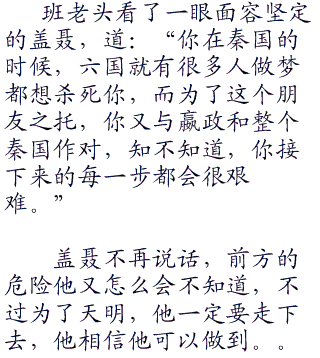 班老头看了一眼面容坚定
的盖聂，道：“你在秦国的
时候，六国就有很多人做梦
都想杀死你，而为了这个朋
友之托，你又与嬴政和整个
秦国作对，知不知道，你接
下来的每一步都会很艰
难。”
盖聂不再说话，前方的
危险他又怎么会不知道，不
过为了天明，他一定要走下
去，他相信他可以做到。。